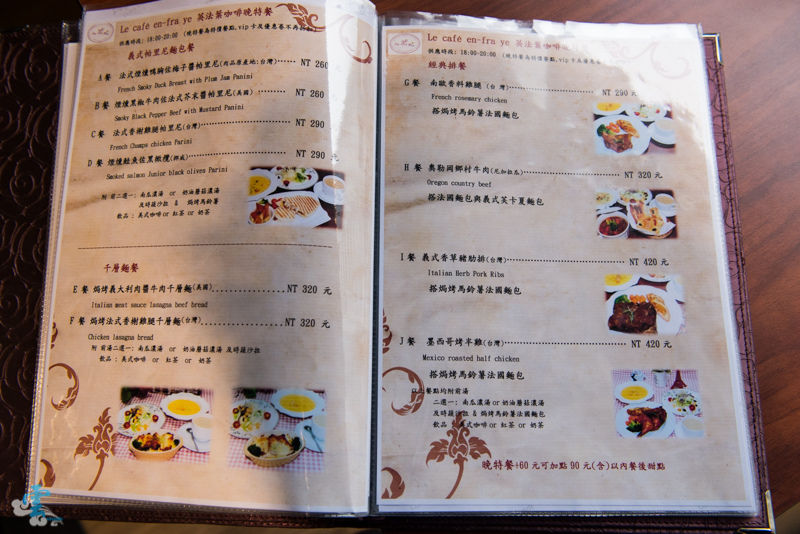 Le café en-fra ye 英法葉咖啡晚特餐
供應時段: 18:00-20:00 (晚特餐為特價餐點,vip卡及優惠券不再折
義式帕里尼麵包餐
A餐 法式煙燻鴨胸佐梅子醬帕里尼(肉品原產地:台灣) NT 260
French Smoky Duck Breast with Plum Jam Panini
B餐 煙燻黑椒牛肉佐法式芥末醬帕里尼(美國) NT 260
Smoky Black Pepper Beef with Mustard Panini
C餐 法式香榭雞腿帕里尼(台灣) NT 290
French Champs chicken Parini
D餐 煙燻鮭魚佐黑橄欖(挪威) NT 290 元
Smoked salmon Junior black olives Parini
附 前二選一: 南瓜濃湯 or 奶油蘑菇濃湯
及時蔬沙拉 & 焗烤馬鈴薯
飲品: 美式咖啡 or 紅茶 or 奶茶
千層麵餐
E餐 焗烤義大利肉醬牛肉千層麵(美國) NT 320 元
Italian meat sauce lasagna beef bread
F餐 焗烤法式香榭雞腿千層麵(台灣) NT 320 元
Chicken lasagna bread
附 前湯二選一: 南瓜濃湯 or 奶油蘑菇濃湯 及時蔬沙拉
飲品: 美式咖啡 or 紅茶 or 奶茶
Le café en-fra ye 英法葉咖啡晚
供應時段: 18:00-20:00 (晚特餐為特價餐點,vip卡及優惠
經典排餐
G餐 南歐香料雞腿 (台灣) NT 290 元
French rosemary chicken
搭焗烤馬鈴薯法國麵包
H餐 奧勒岡鄉村牛肉(尼加拉瓜) NT 320 元
Oregon country beef
搭法國麵包與義式芙卡夏麵包
I餐 義式香草豬肋排(台灣) NT 420 元
Italian Herb Pork Ribs
搭焗烤馬鈴薯法國麵包
J餐 墨西哥烤半雞(台灣) NT 420 元
Mexico roasted half chicken
搭焗烤馬鈴薯法國麵包
以上餐點均附前湯
二選一: 南瓜濃湯 or 奶油蘑菇濃湯
及時蔬沙拉 & 焗烤馬鈴薯法國麵包
飲品: 美式咖啡 or 紅茶 or 奶茶
晚特餐+60 元可加點 90 元(含)以內餐後甜點